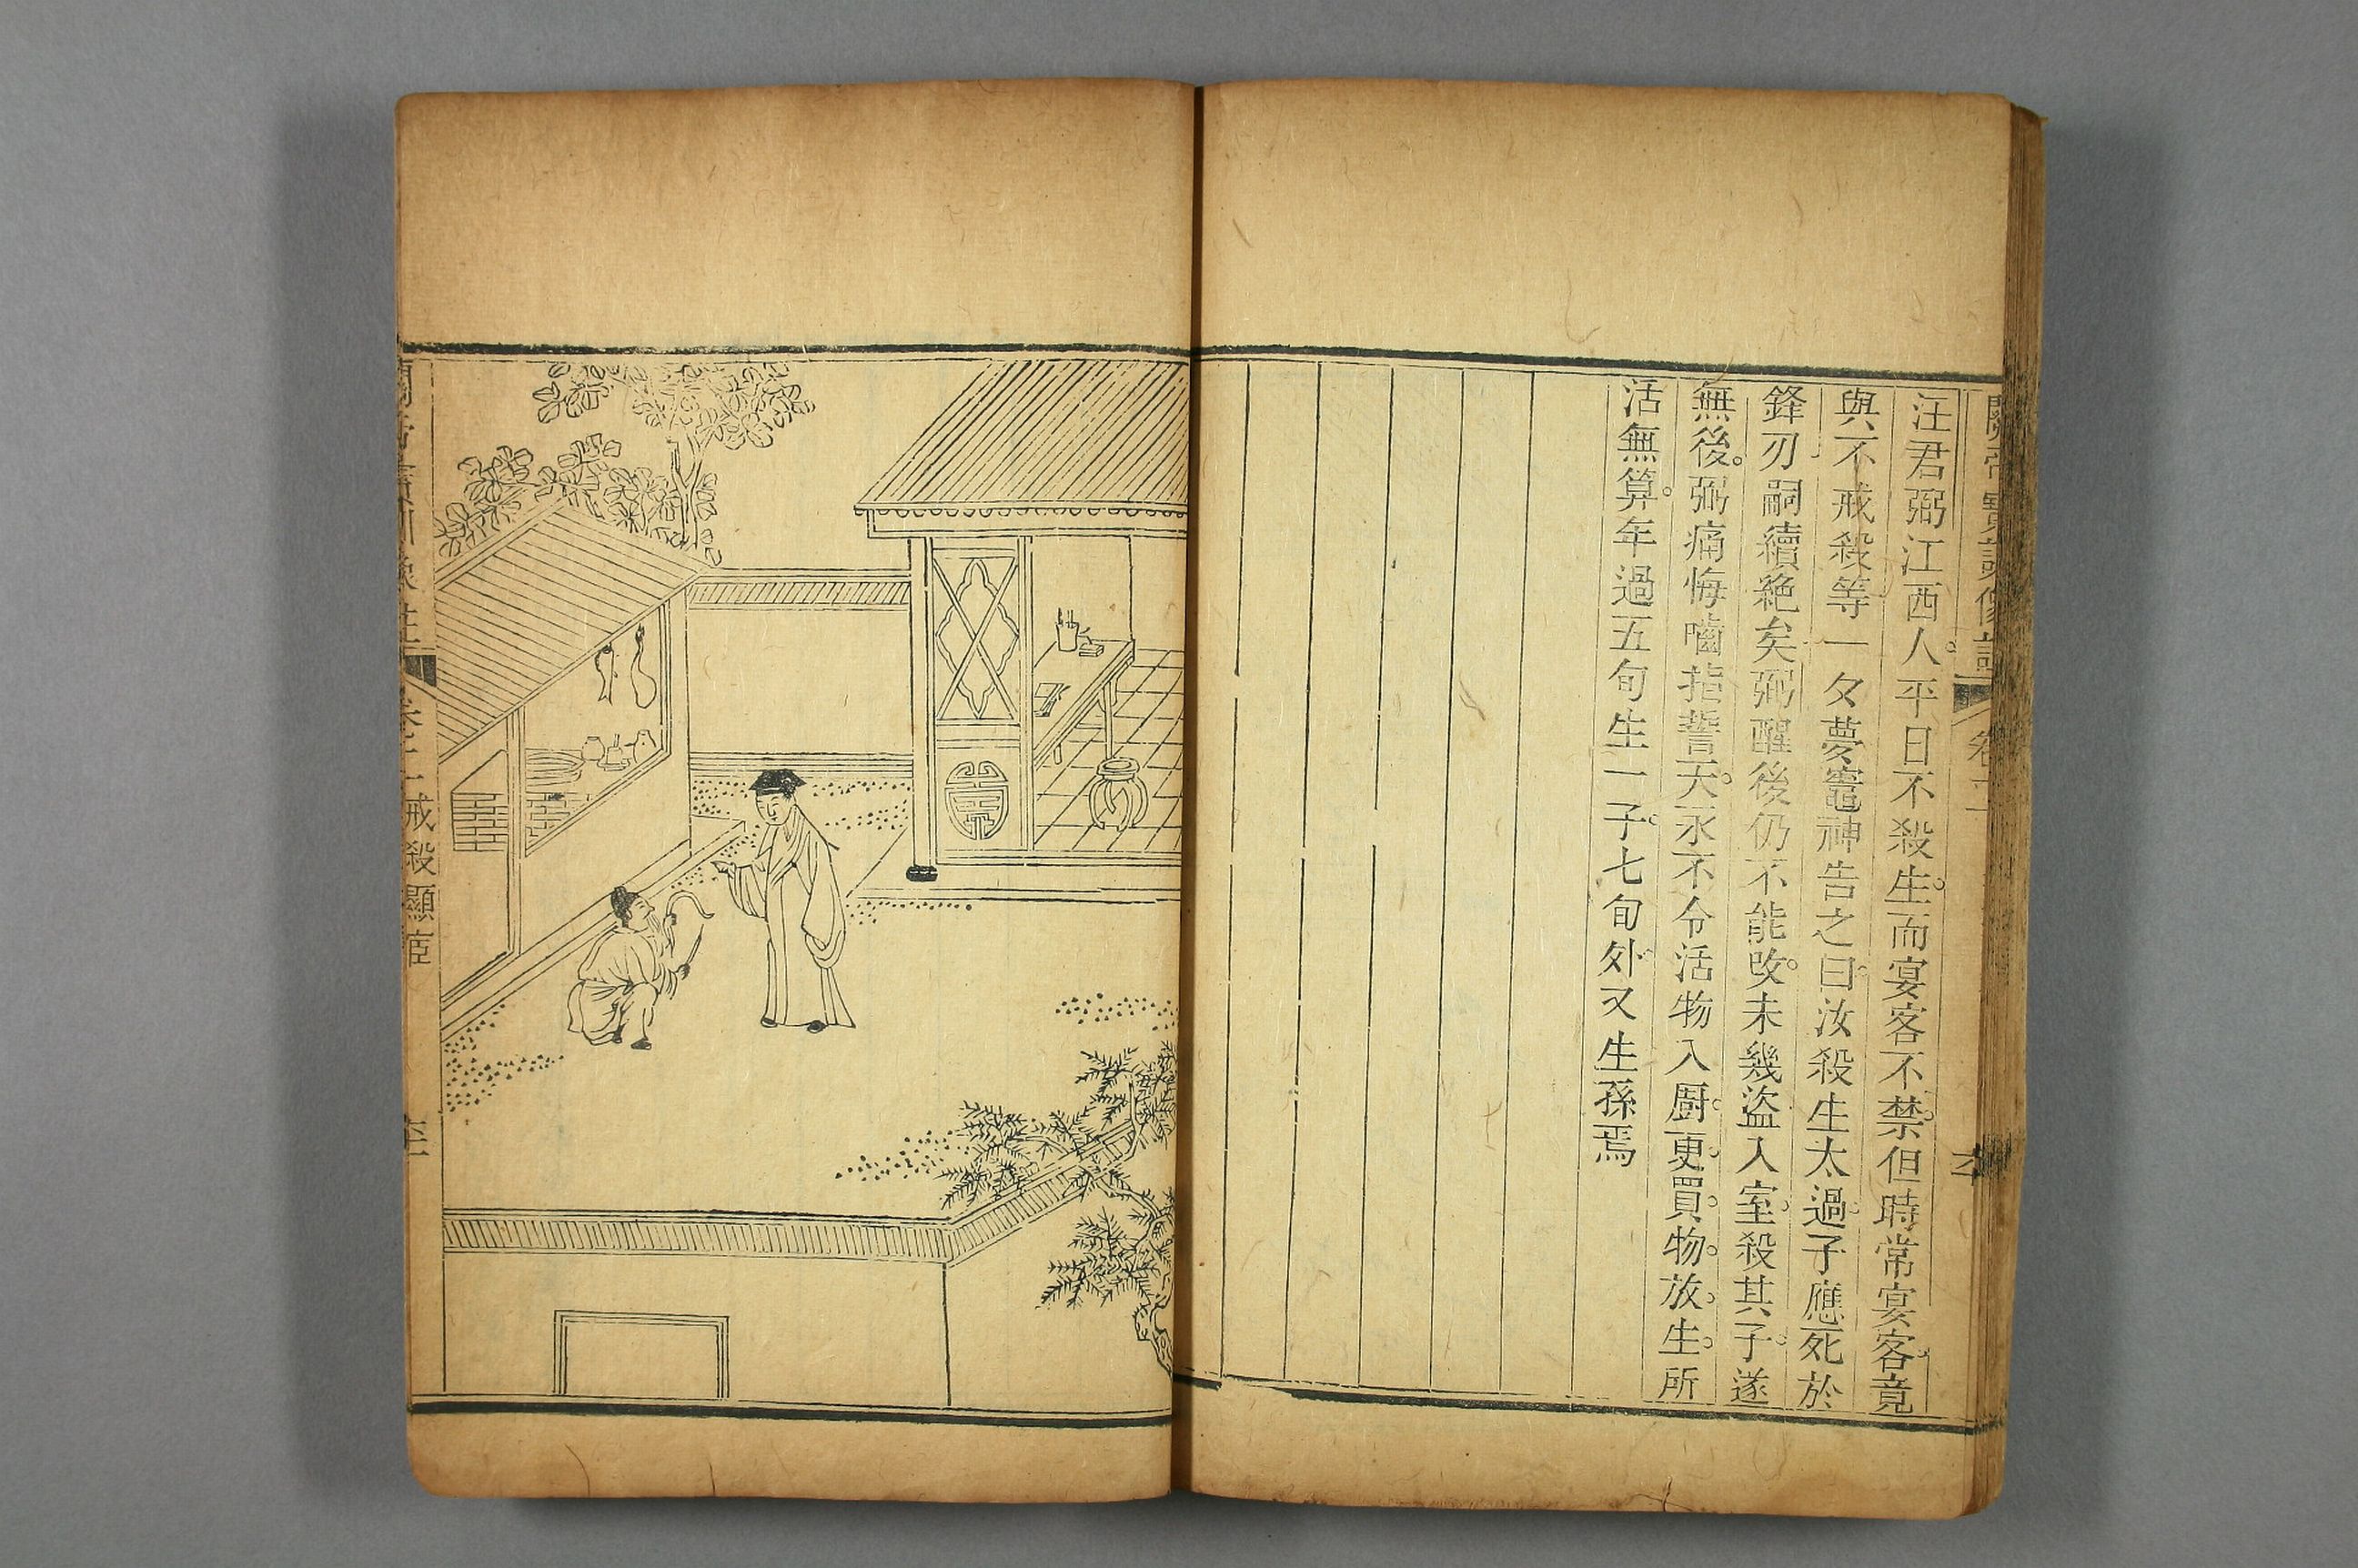 汪君弼江西人平日不殺生而宴客不禁但時常宴客竟
與不戒殺等一夕夢竈神告之曰汝殺生太過子應死於
鋒刃嗣續絶矣弼醒後仍不能改未幾盜入室殺其子遂
無後弼痛悔嚙指誓天永不令活物入厨更買物放生所
活無算年過五旬生一子七旬外又生孫焉
戒殺顯宦